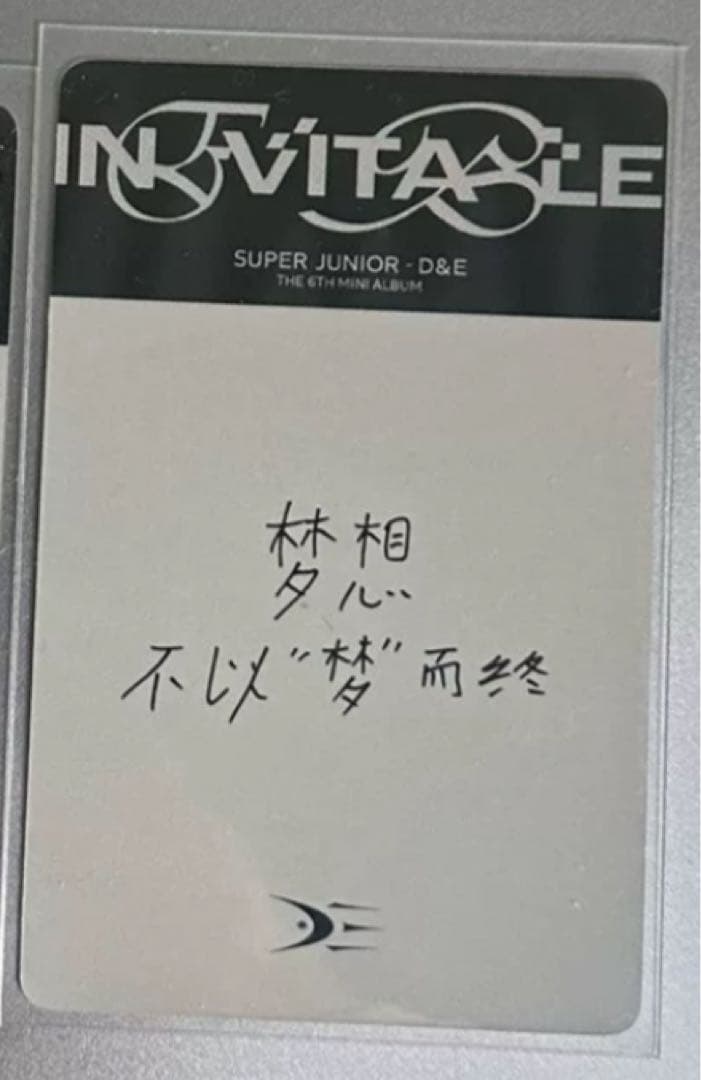 INEVITABLE
SUPER JUNIOR - D&E
THE 6TH MINI ALBUM
梦想
不以“梦”而终
DE